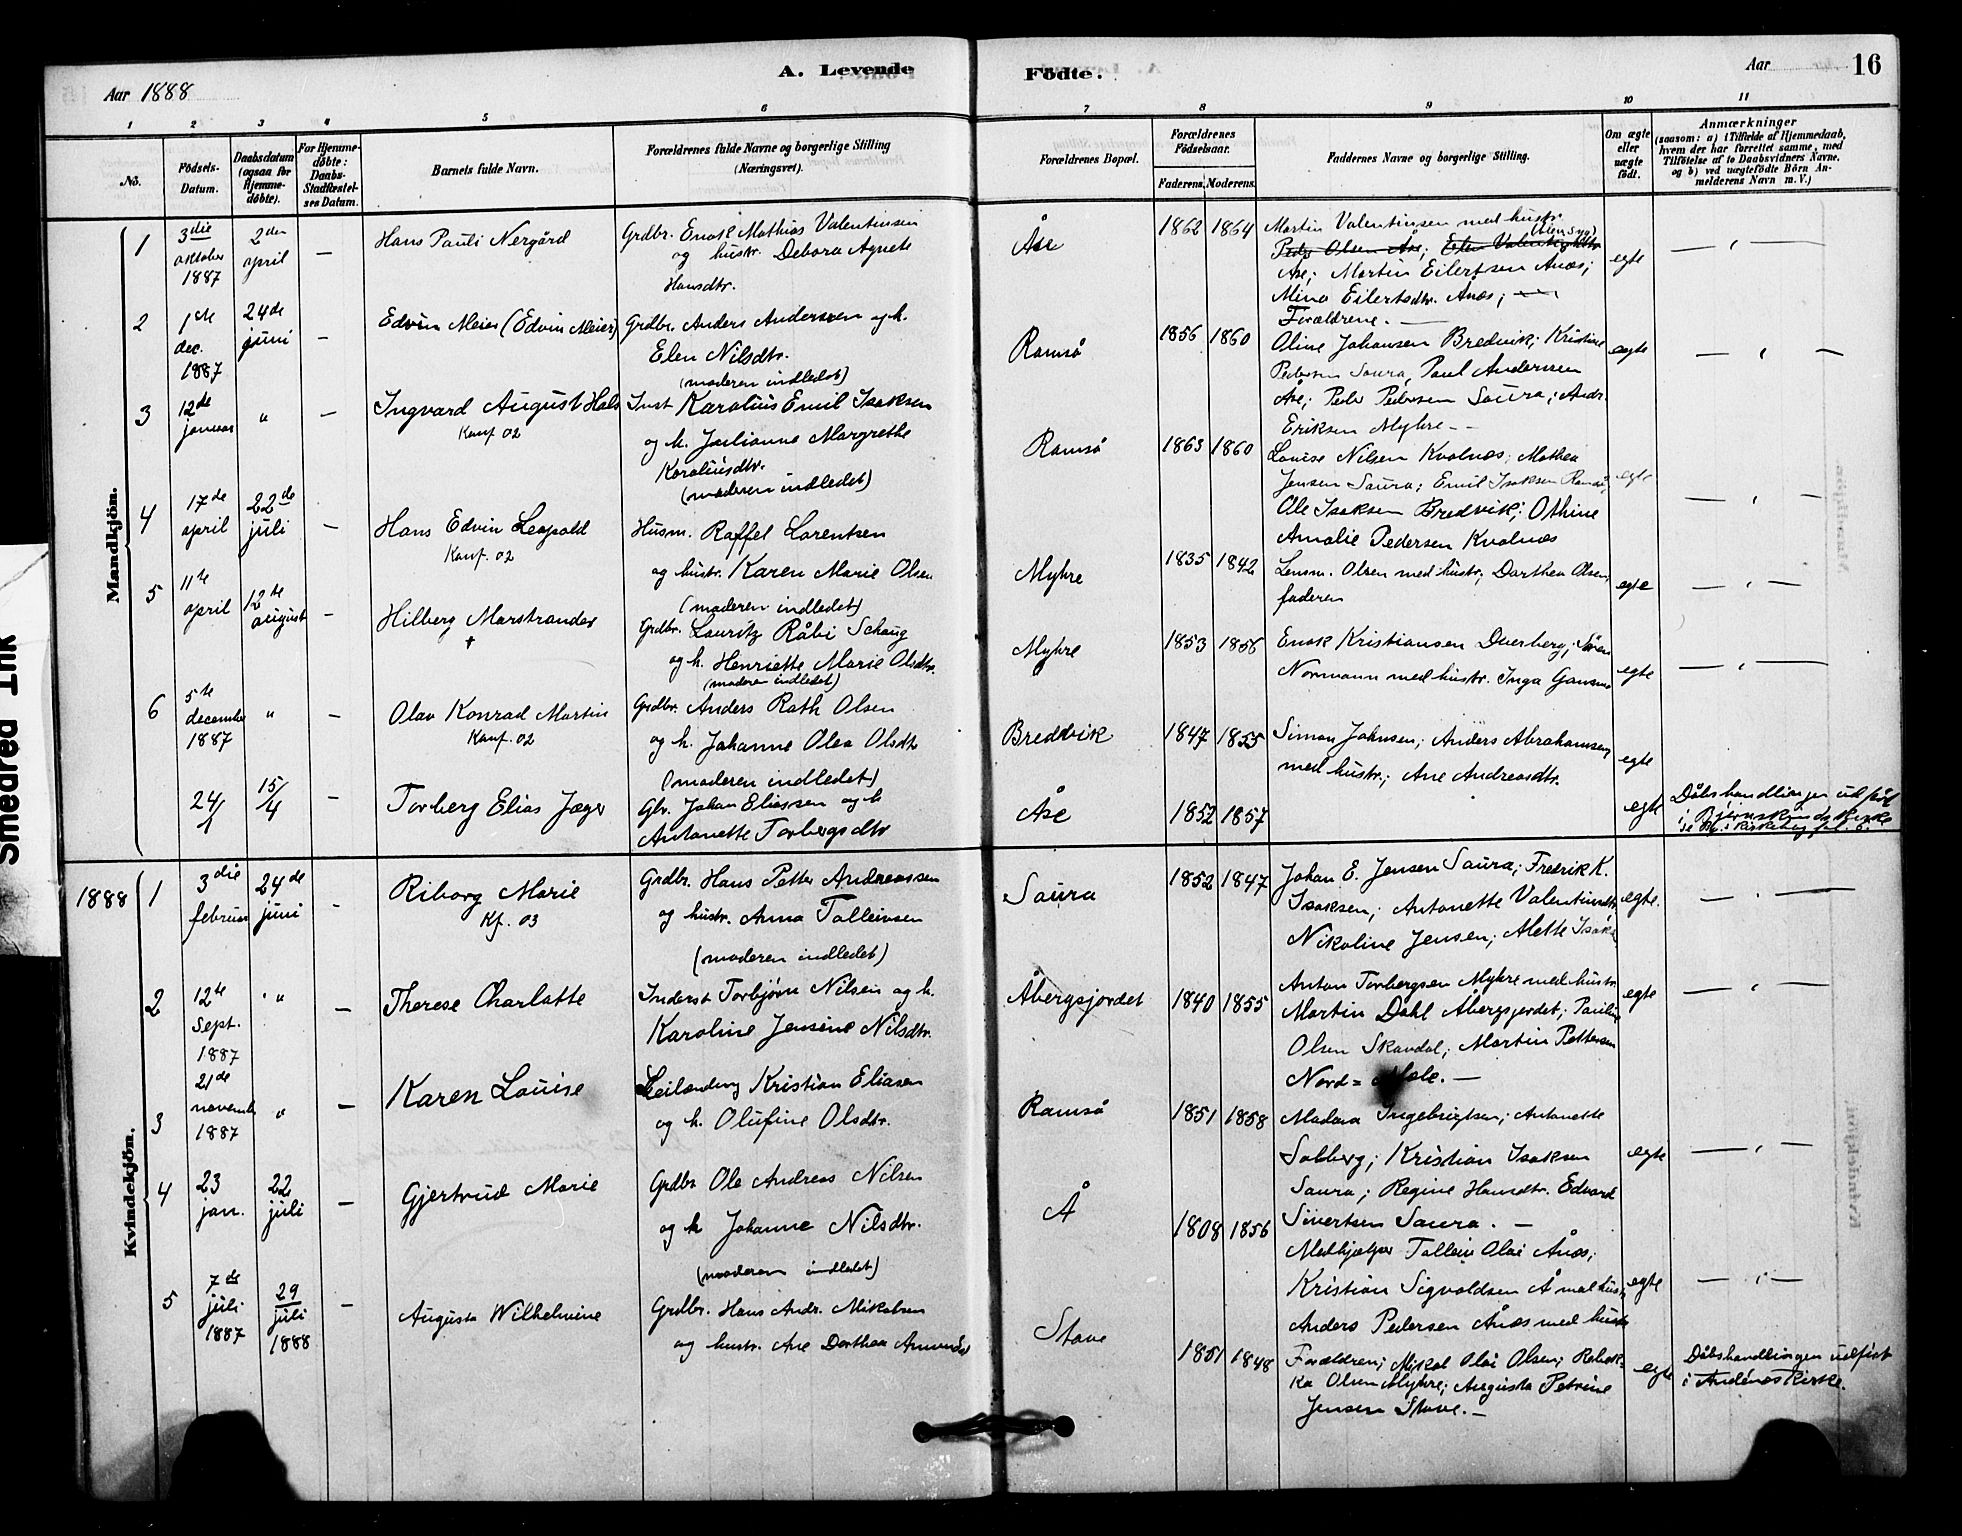 A. Levende Födte.
Aar 1888
Aar 16
1 2 3 4 5 6 7 8 9 10 11
No.
Födsels-Datum.
Daabsdatum (ogsaa for Hjemme-döbte).
For Hjemme-döbte: Daabs-Stadfæstel-ses Datum.
Barnets fulde Navn.
Forældrenes fulde Navne og borgerlige Stilling (Næringsvei).
Forældrenes Bopæl.
Forældrenes Födselsaar.
Faderens. Moderens.
Faddernes Navne og borgerlige Stilling.
Om ægte eller uægte födt.
Anmærkninger
(saasom: a) i Tilfælde af Hjemmedaab, hvem der har forrettet samme, med Tilföielse af to Daabsvidners Navne, og b) ved uægtefödte Börn An-melderens Navn m. V.)
Mandkjön.
1 3die oktober 1887 2den april —
Hans Pauli Nergård
Grdbr. Enok Mathias Valentinsen
og hustr. Debora Agnete
Hansdtr.
Åse 1862 1864
Martin Valentinsen med hustr.
Peder Olsen Åse; Elen
Åse; Martin Eilertsen Ånes;
Mina Eilertsdtr. Ånæs;
Forældrene. —
egte — „ —
2 1ste dec. 1887 24de juni —
Edvin Meier (Edvin Meier)
Grdbr. Anders Andersen og h.
Elen Nilsdtr.
(moderen indledet)
Ramså 1856 1860
Oline Johansen Bredvik; Kristine
Pedersen Saura, Paul Andersen
Åse; Peder Pedersen Saura; Andr.
Eriksen Myhre — —
egte — „ —
3 12de januar „ —
Ingvard August Hals
Konf. 02
Inst Karolius Emil Isaksen
og h. Julianne Margrethe
Karoliusdtr.
(moderen indledet)
Ramså 1863 1860
Lovise Nilsen Kvalnæs; Mathea
Jensen Saura; Emil Isaksen Ramså;
Ole Isaksen Bredvik; Othine
Amalie Pedersen Kvalnæs
egte — „ —
4 17de april 22de juli —
Hans Edvin Leopold
Konf. 02
Husm. Raffel Lorentsen
og hustr. Karen Marie Olsen
(moderen indledet)
Myhre 1835 1842
Lensm. Olsen med hustr; Dorthea Olsen;
faderen
egte — „ —
5 11te april 12te august —
Hilberg Marstrander
†
Grdbr. Lauritz Råbi Schaug
og h. Henriette Marie Olsdtr.
(moderen indledet)
Myhre 1853 1856
Enok Kristiansen Dverberg; Sören
Normann med hustr. Inga
egte — „ —
6 5te december 1887 „ —
Olav Konrad Martin
Konf. 02
Grdbr. Anders Rath Olsen
og h. Johanne Olea Olsdtr
(moderen indledet)
Bredvik 1847 1855
Simon Johnsen; Anders Abrahamsen
med hustr.; Ane Andreasdtr.
egte
24/1 15/4 —
Torberg Elias Jæger
Gbr. Johan Eliassen og h
Antonette Torbergsdtr
Åse 1852 1857
egte
Dåbshandlingen udført
i Bjørnskinds kirke
Kvindekjön.
1888 1 3die februar 24de juni —
Riborg Marie
Kf. 03
Grdbr. Hans Petter Andreassen
og hustr. Anna Talleivsen
(moderen indledet)
Saura 1852 1847
Johan E. Jensen Saura; Fredrik K.
Isaksen; Antonette Valentinsdtr.
Nikoline Jensen; Alette
egte. — „ —
2 12te Sept. 1887 „ —
Therese Charlotte
Inderst Torbjørn Nilsen og h.
Karoline Jensine Nilsdtr.
Åbergsjordet 1840 1855
Anton Torbergsen Myhre med hustr.
Martin Dahl Åbergsjordet; Pauline
Olsen Skavdal; Martin Pettersen
Nord=
egte — „ —
3 21de novemb 1887 „ —
Karen Louise
Leilænding Kristian Eliasen
og h. Olufine Olsdtr.
Ramså 1851 1858
Ingebrigtsen; Antonette
Solberg; Kristian Isaksen
Saura; Regine Hansdtr. Edvard
Sivertsen Saura. —
egte — „ —
4 23 jan. 22 juli —
Gjertrud Marie
Grdbr Ole Andreas Nilsen
og h Johanne Nilsdtr.
(moderen indledet)
Å 1808 1856
Medhjælper Talleiv Olai Ånæs;
Kristian Sigvaldsen Å med hustr
Anders Pedersen Ånæs med hustr
egte — „ —
5 7de juli 1887 29 juli 1888 —
Augusta Wilhelmine
Grdbr. Hans Andr. Mikalsen
og hustr. Ane Dorthea
Stave 1851 1848
Forældren; Mikal Olai Olsen; Rebek-
ka Olsen Myhre; Augusta Petrine
Jensen Stave. —
egte
Dåbshandlingen udført
i Andenæs kirke.
Smedred Ink